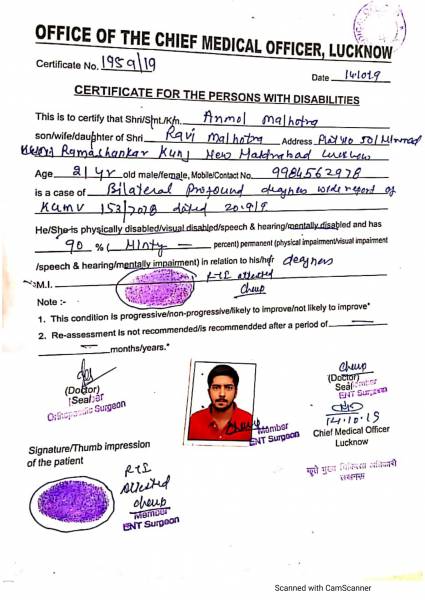 OFFICE OF THE CHIEF MEDICAL OFFICER, LUCKNOW
Certificate No. 1959/19
Date
CERTIFICATE FOR THE PERSONS WITH DISABILITIES
This is to certify that Shri/Smt./Km. Anmol Malhotra
son/wife/daughter of Shri Ravi Malhotra Address Plot No 50
Ramashankar Kunj New
Age 21 yr old male/female, Mobile/Contact No. 9984562978
is a case of Bilateral Profound deafness wide report of
KGMU dated
He/She is physically disabled/visual disabled/speech & hearing/mentally disabled and has
90 % ( Ninty percent) permanent (physical impairment/visual impairment
/speech & hearing/mentally impairment) in relation to his/her deafness
M.I. RTI attested
Note :-
1. This condition is progressive/non-progressive/likely to improve/not likely to improve*
2. Re-assessment is not recommended/is recommendded after a period of
months/years.*
(Doctor)
Seal
Orthopaedic Surgeon
(Doctor)
Seal Member
ENT Surgeon
14.10.19
Chief Medical Officer
Lucknow
Member
ENT Surgeon
Signature/Thumb impression
of the patient
RTI
attested
Member
ENT Surgeon
मुख्य चिकित्सा अधिकारी
लखनऊ
Scanned with CamScanner